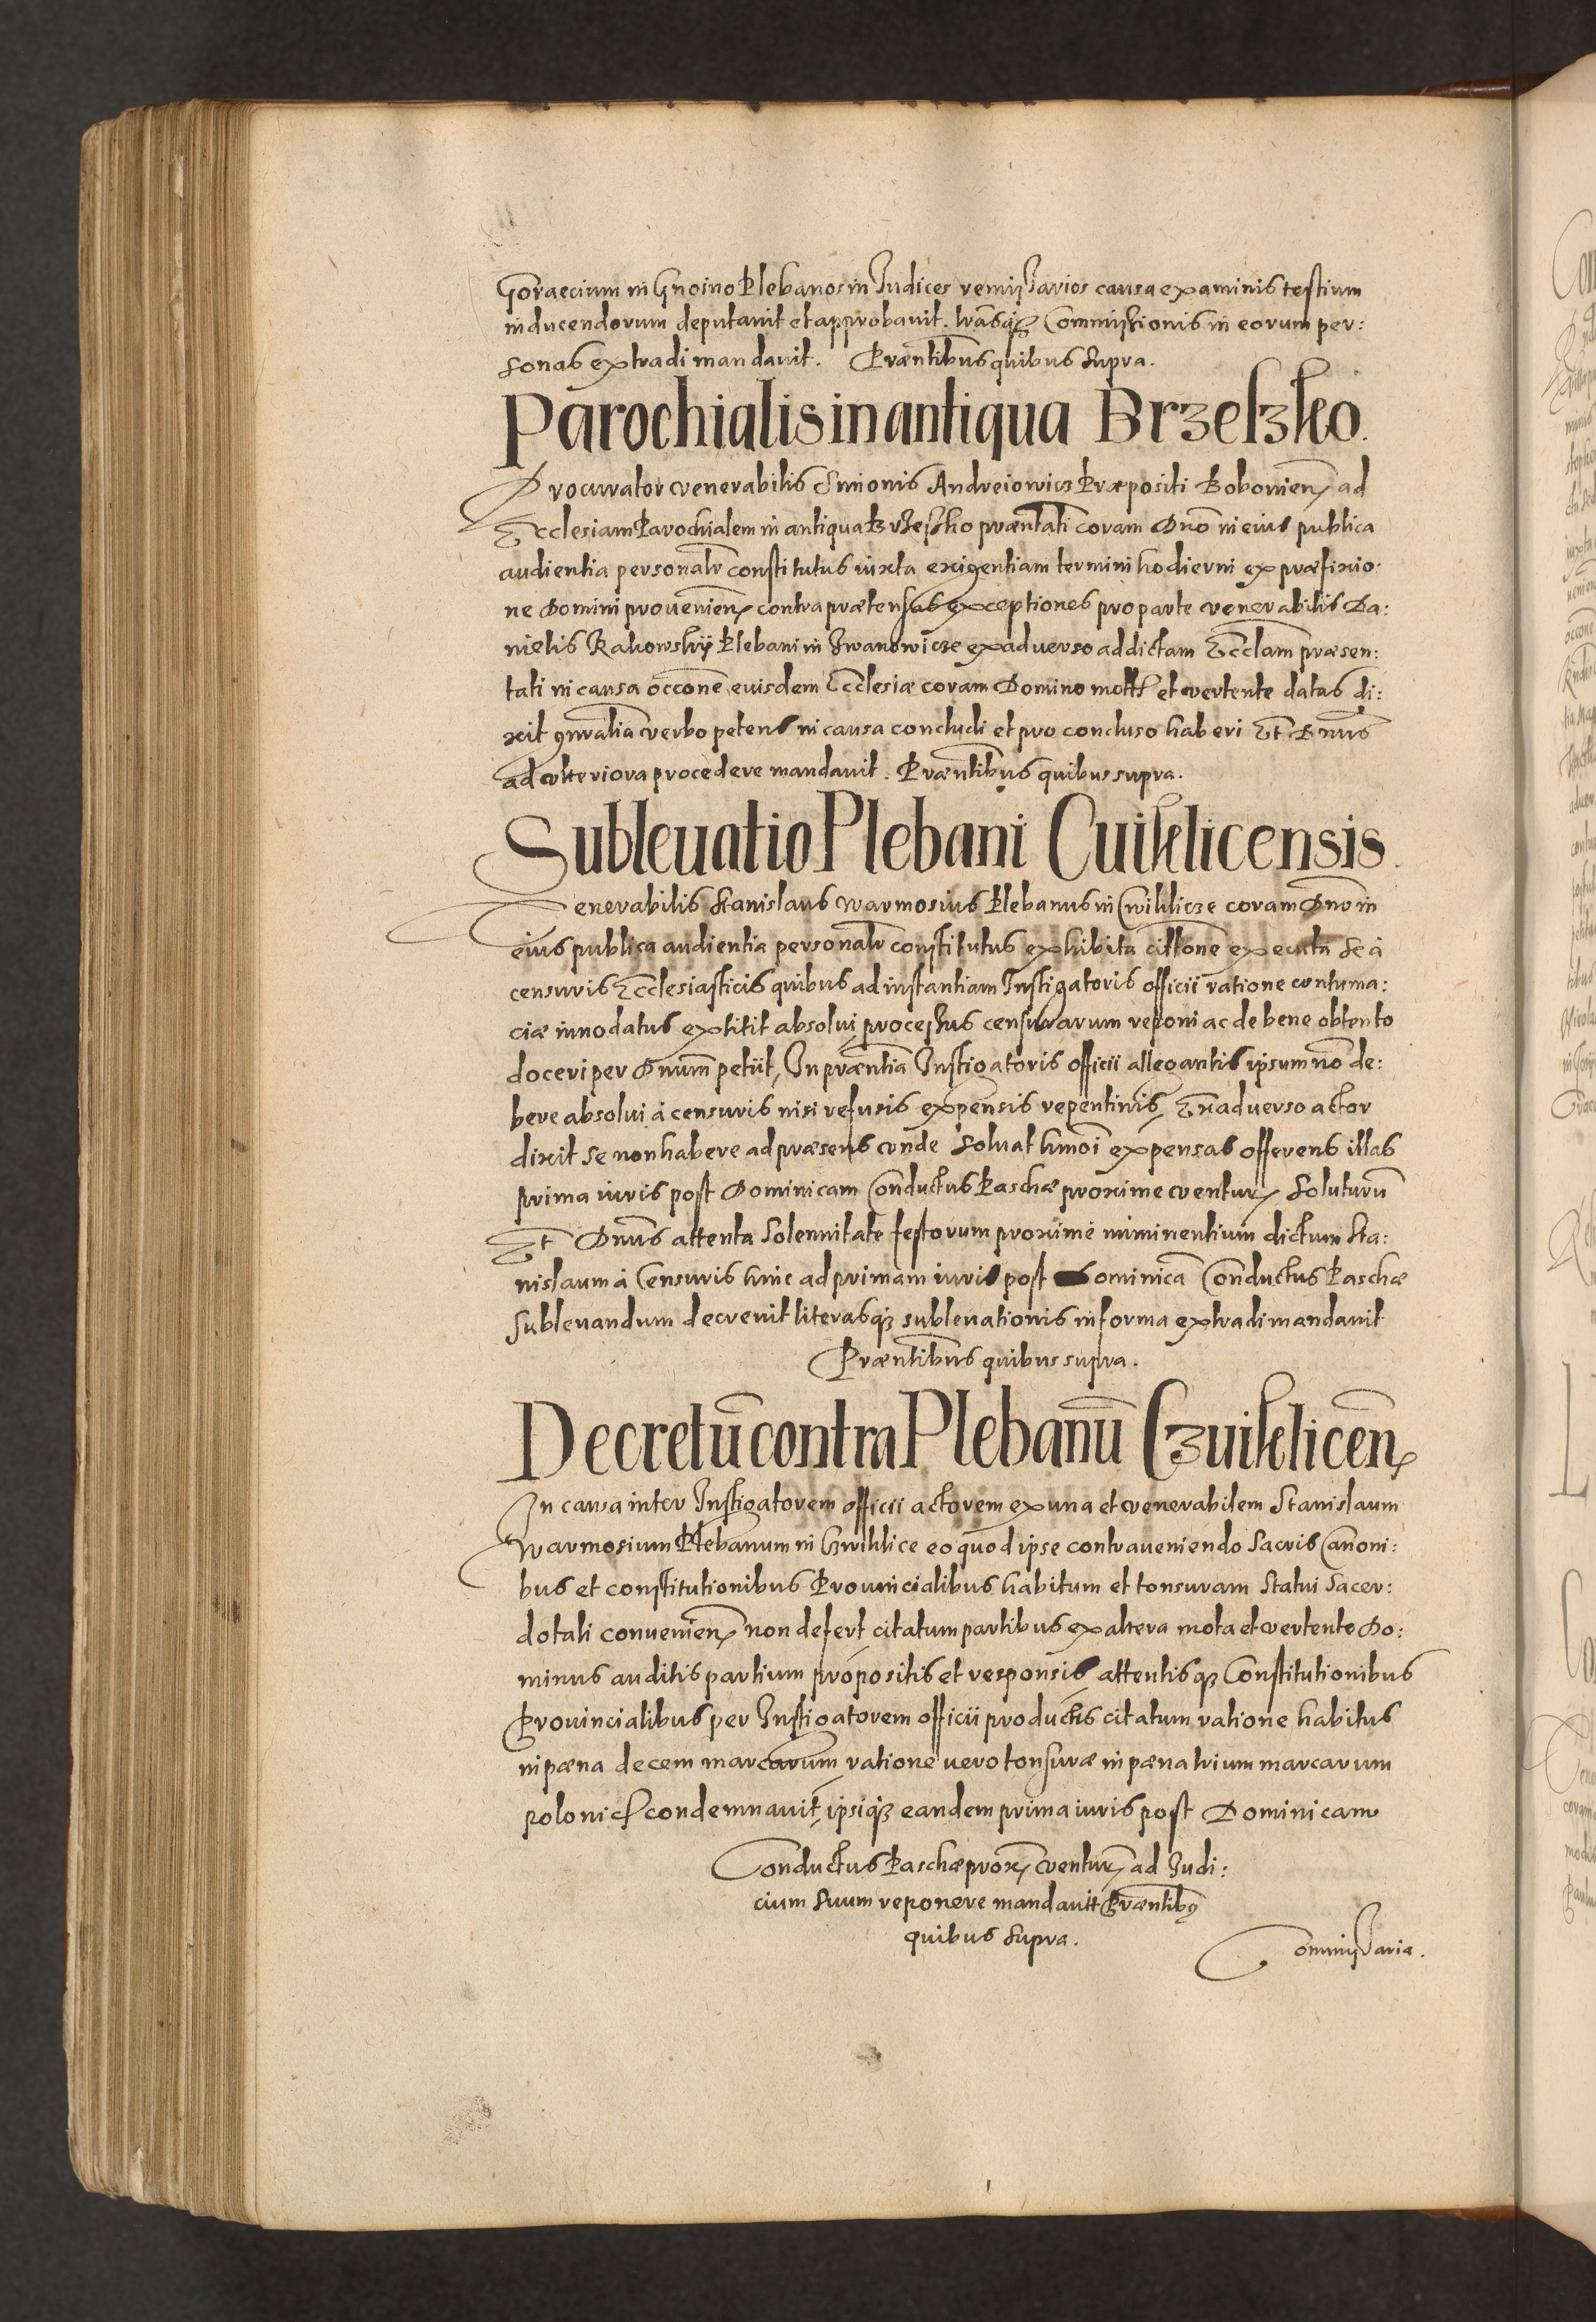 Goraecium in Gnoino Plebanos in Iudices remissarios causa examinis testium
inducendorum deputavit et approbavit. lrasq3 Commissionis in eorum per:
sonas extradi mandavit. Præntibus quibus supra.
Parochialis in antiqua Brzeszko.
Procurator venerabilis Simonis Andreiowicz Præpositi Bobouien ad
Ecclesiam Parochialem in antiqua Brzesko præntati coram Dno in eius publica
audientia personalr constitutus iuxta exigentiam termini hodierni ex præfixio:
ne Domini prouenien contra prætensas exceptiones pro parte venerabilis Da:
nielis Rakowskÿ Plebani in Iwanowicze ex adverso ad dictam Eccłam præsen:
tati in causa occone euisdem Ecclesiæ coram Domino mott et vertente datas di:
xit gnralia verbo petens in causa concludi et pro concluso haberi Et Dnus
ad ulteriora procedere mandavit. Præntibus quibus supra.
Subleuatio Plebani Cuiklicensis.
Venerabilis Stanislaus Warmosius Plebanus in Cwiklicze coram Dno in
eius publica audientia personalr constitutus exhibita cittone executa se à
censuris Ecclesiasticis quibus ad instantiam Instigatoris officii ratione contuma:
ciæ innodatus extitit absolui processus censurarum reponi ac de bene obtento
doceri per Dnum petiit, In præntia Instigatoris officii allegantis ipsum no de:
bere absolui à censuris nisi refusis expensis repentinis, Ex adverso actor
dixit se non habere ad præsens unde soluat hmoi expensas offerens illas
prima iuris post Dominicam Conductus Paschæ proxime ventur soluturu
Et Dnus attenta solennitate festorum proxime imminentium dictum Sta:
nislaum à Censuris hinc ad primam iuris post Dominica Conductus Paschæ
subleuandum decreuit literasq3 subleuationis in forma extradi mandavit
Præntibus quibus supra.
Decretu contra Plebanu Czuiklicen
In causa inter Instigatorem officii actorem ex una et venerabilem Stanislaum
Warmosium Plebanum in Czwiklice eo quod ipse contraueniendo sacris Canoni:
bus et constitutionibus Prouincialibus habitum et tonsuram statui sacer:
dotali conuenien non defert citatum partibus ex altera mota et vertente Do:
minus auditis partium propositis et responsis attentisq3 Constitutionibus
Prouincialibus per Instigatorem officii productis citatum ratione habitus
in pæna decem marcarum ratione uero tonsuræ in pæna trium marcarum
polonic condemnauit, ipsiq3 eandem prima iuris post Dominicam
Conductus Paschæ prox ventur ad Iudi:
cium suum reponere mandauit Præntib9
quibus supra.
Commissaria.